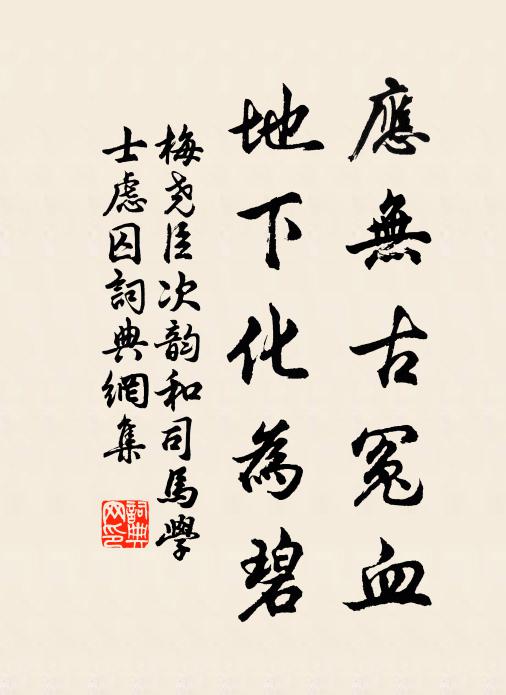 應無古冤血
地下化為碧
梅尧臣次韵和司馬學
士慮囚詞典網集
詞典
网印